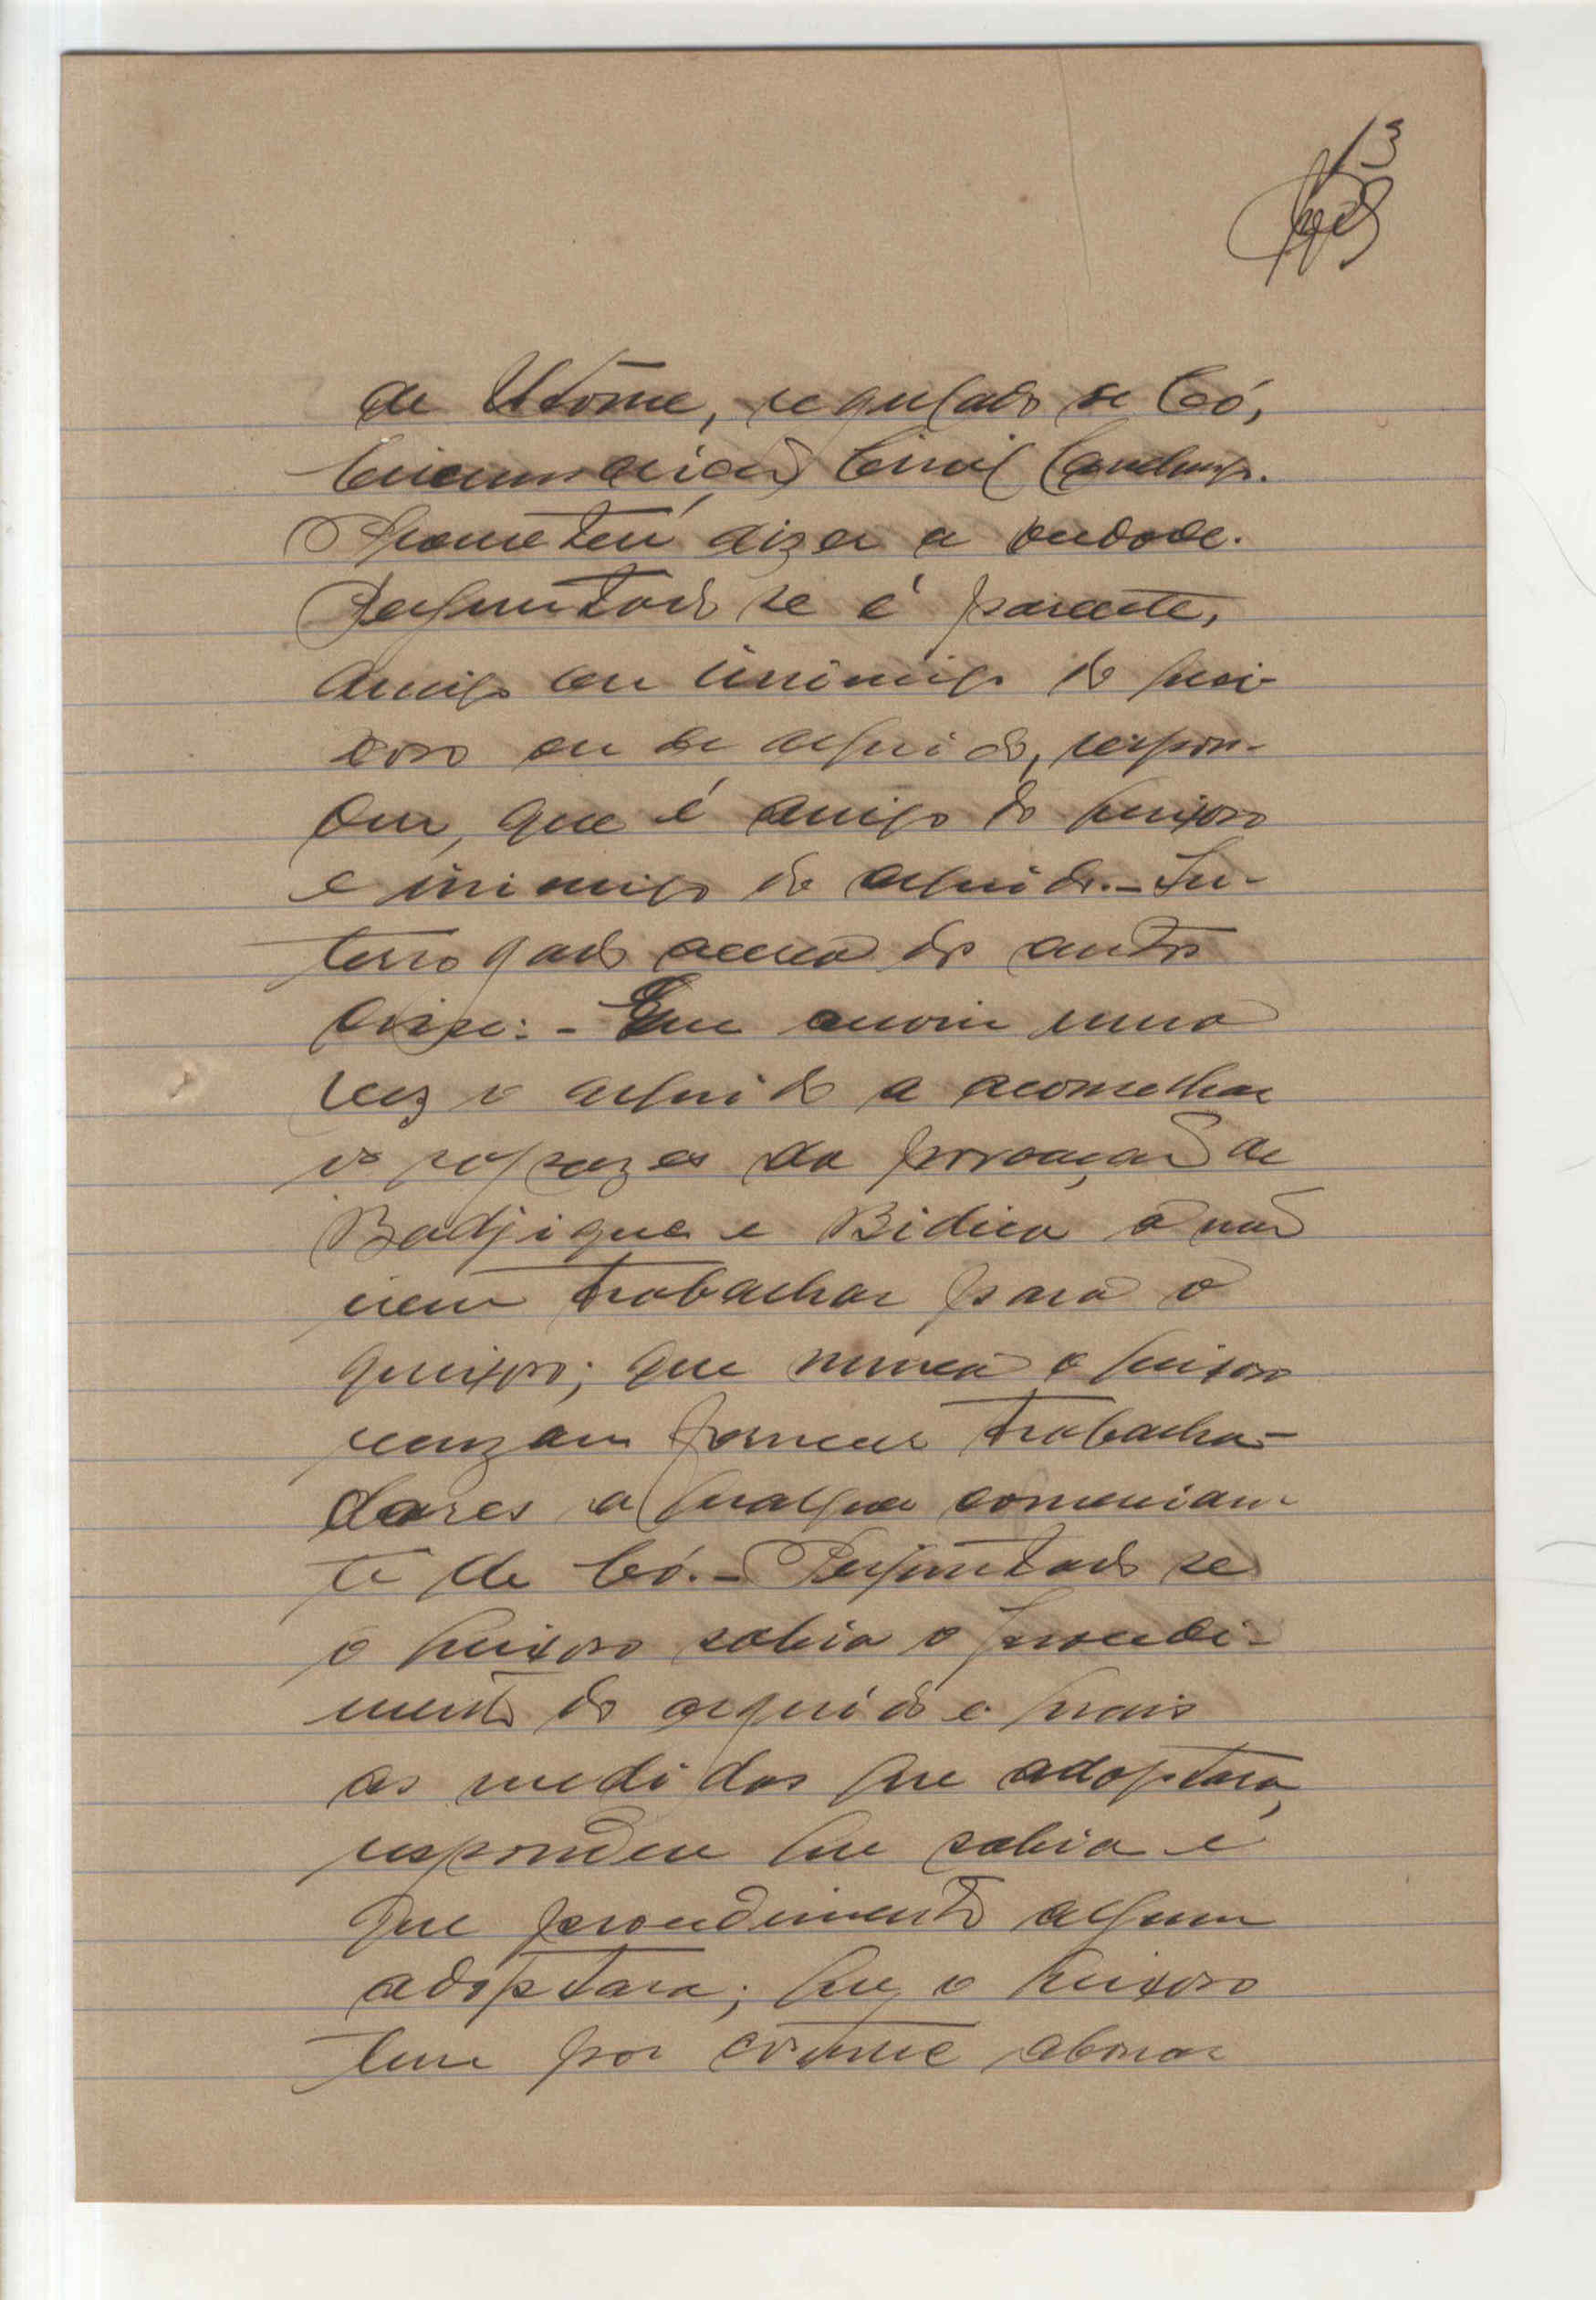 13
de Utôme, regulado de Có,
Circunscrição Civil Canchungo.
Prometeu dizer a verdade.
Perguntado se é parente,
amigo ou inimigo do quei-
xoso ou do arguido, respon-
deu, que é amigo do queixoso
e inimigo do arguido. - In-
terrogado acerca dos autos
disse: - Que ouviu uma
vez o arguido a aconselhar
os rapazes da povoação de
Badjique e Bidica a não
irem trabalhar para o
queixoso; que nunca o queixoso
forneceu trabalha-
dores a qualquer comercian-
te de Có. - Perguntado se
o queixoso sabia o procedi-
mento do arguido e quais
as medidas que adoptara,
respondeu que sabia e
que procedimento algum
adoptara; que o queixoso
tem por costume abonar